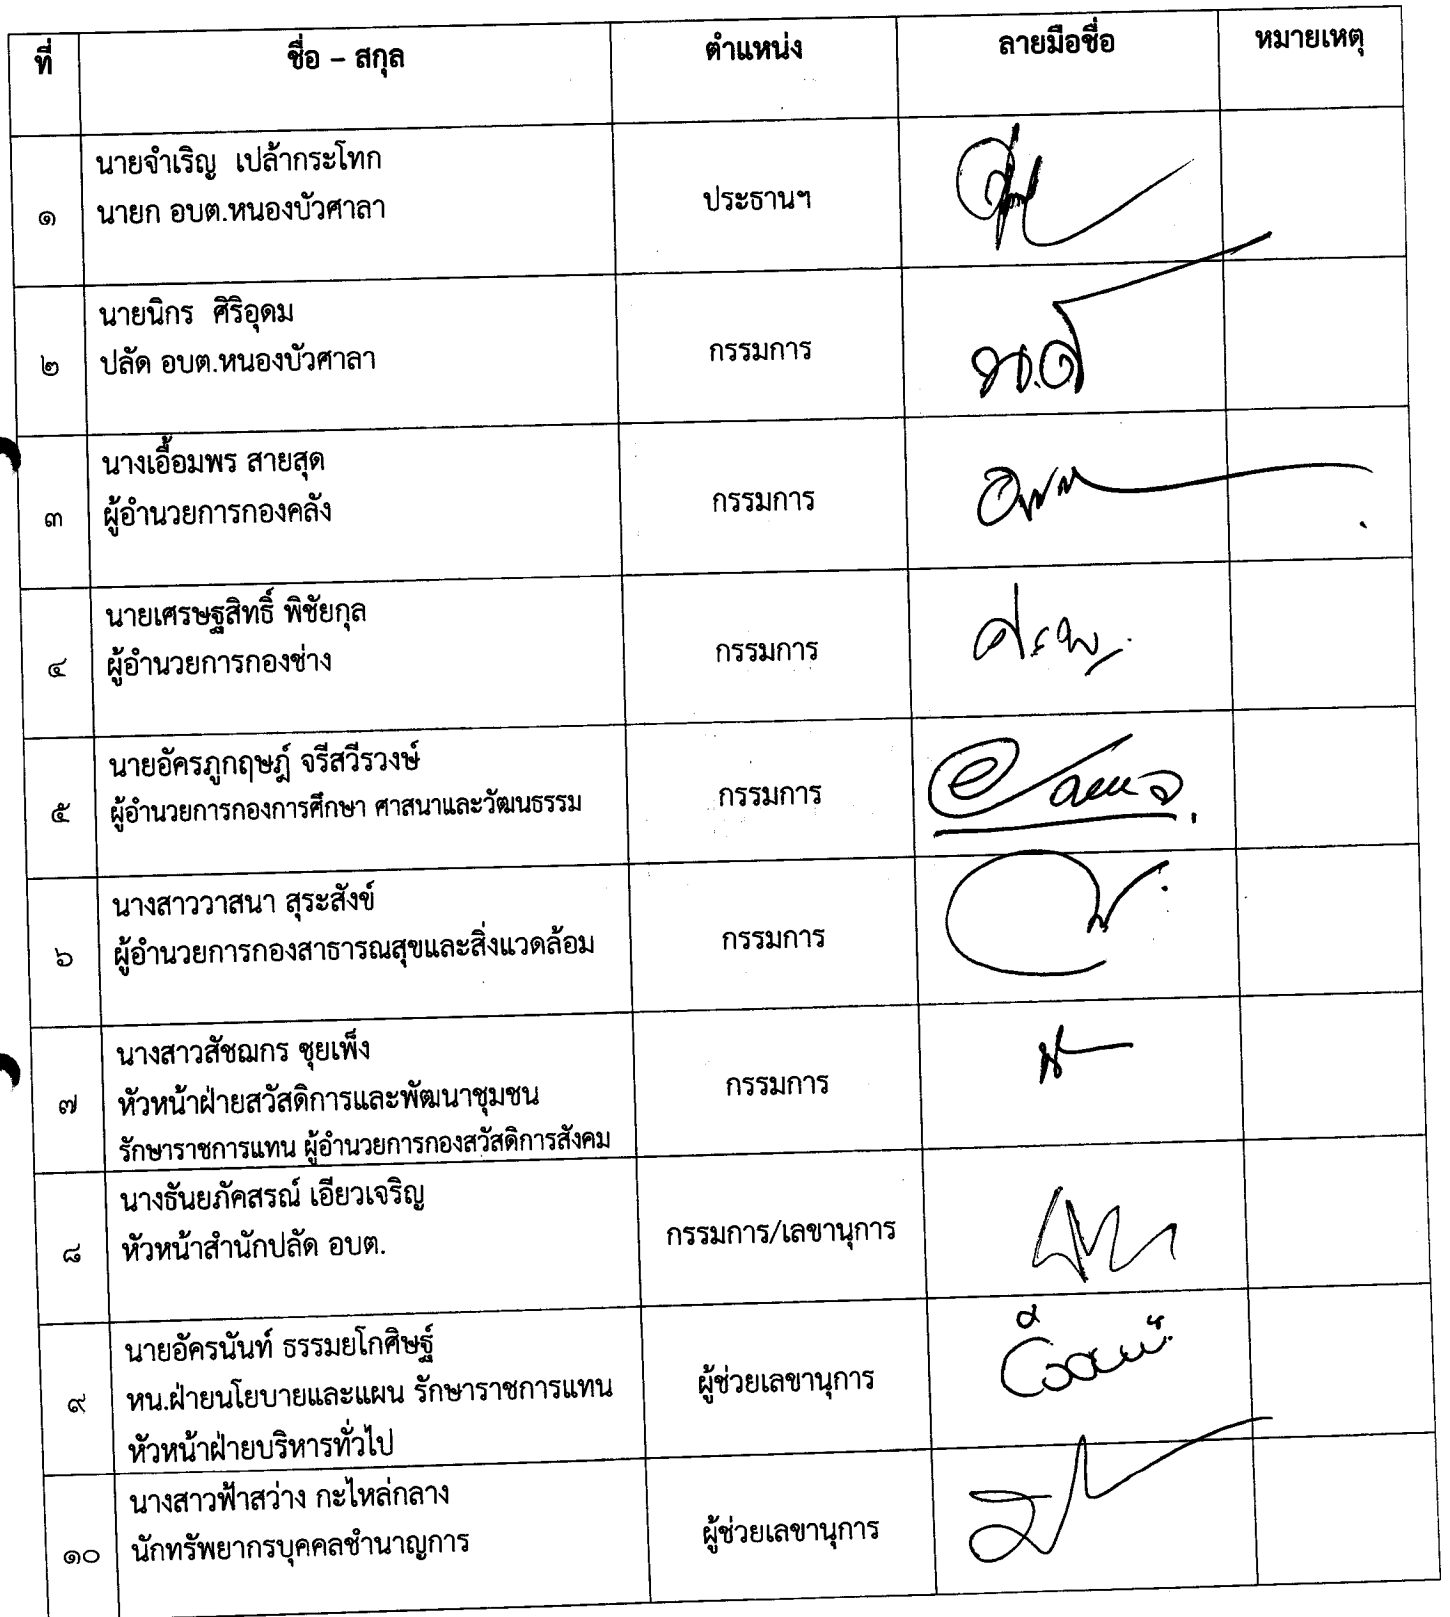 ที่ ชื่อ – สกุล ตำแหน่ง ลายมือชื่อ หมายเหตุ
นายจำเริญ เปล้ากระโทก
๑ นายก อบต.หนองบัวศาลา ประธานฯ
นายนิกร ศิริอุดม
๒ ปลัด อบต.หนองบัวศาลา กรรมการ
นางเอื้อมพร สายสุด
๓ ผู้อำนวยการกองคลัง กรรมการ
นายเศรษฐสิทธิ์ พิชัยกุล
๔ ผู้อำนวยการกองช่าง กรรมการ
นายอัครภูกฤษฎ์ จรีสวีรวงษ์
๕ ผู้อำนวยการกองการศึกษา ศาสนาและวัฒนธรรม กรรมการ
นางสาววาสนา สุระสังข์
๖ ผู้อำนวยการกองสาธารณสุขและสิ่งแวดล้อม กรรมการ
นางสาวสัชฌกร ชุยเพ็ง
๗ หัวหน้าฝ่ายสวัสดิการและพัฒนาชุมชน กรรมการ
รักษาราชการแทน ผู้อำนวยการกองสวัสดิการสังคม
นางธันยภัคสรณ์ เอียวเจริญ
๘ หัวหน้าสำนักปลัด อบต. กรรมการ/เลขานุการ
นายอัครนันท์ ธรรมยโกศิษฐ์
๙ หน.ฝ่ายนโยบายและแผน รักษาราชการแทน ผู้ช่วยเลขานุการ
หัวหน้าฝ่ายบริหารทั่วไป
นางสาวฟ้าสว่าง กะไหล่กลาง
๑๐ นักทรัพยากรบุคคลชำนาญการ ผู้ช่วยเลขานุการ